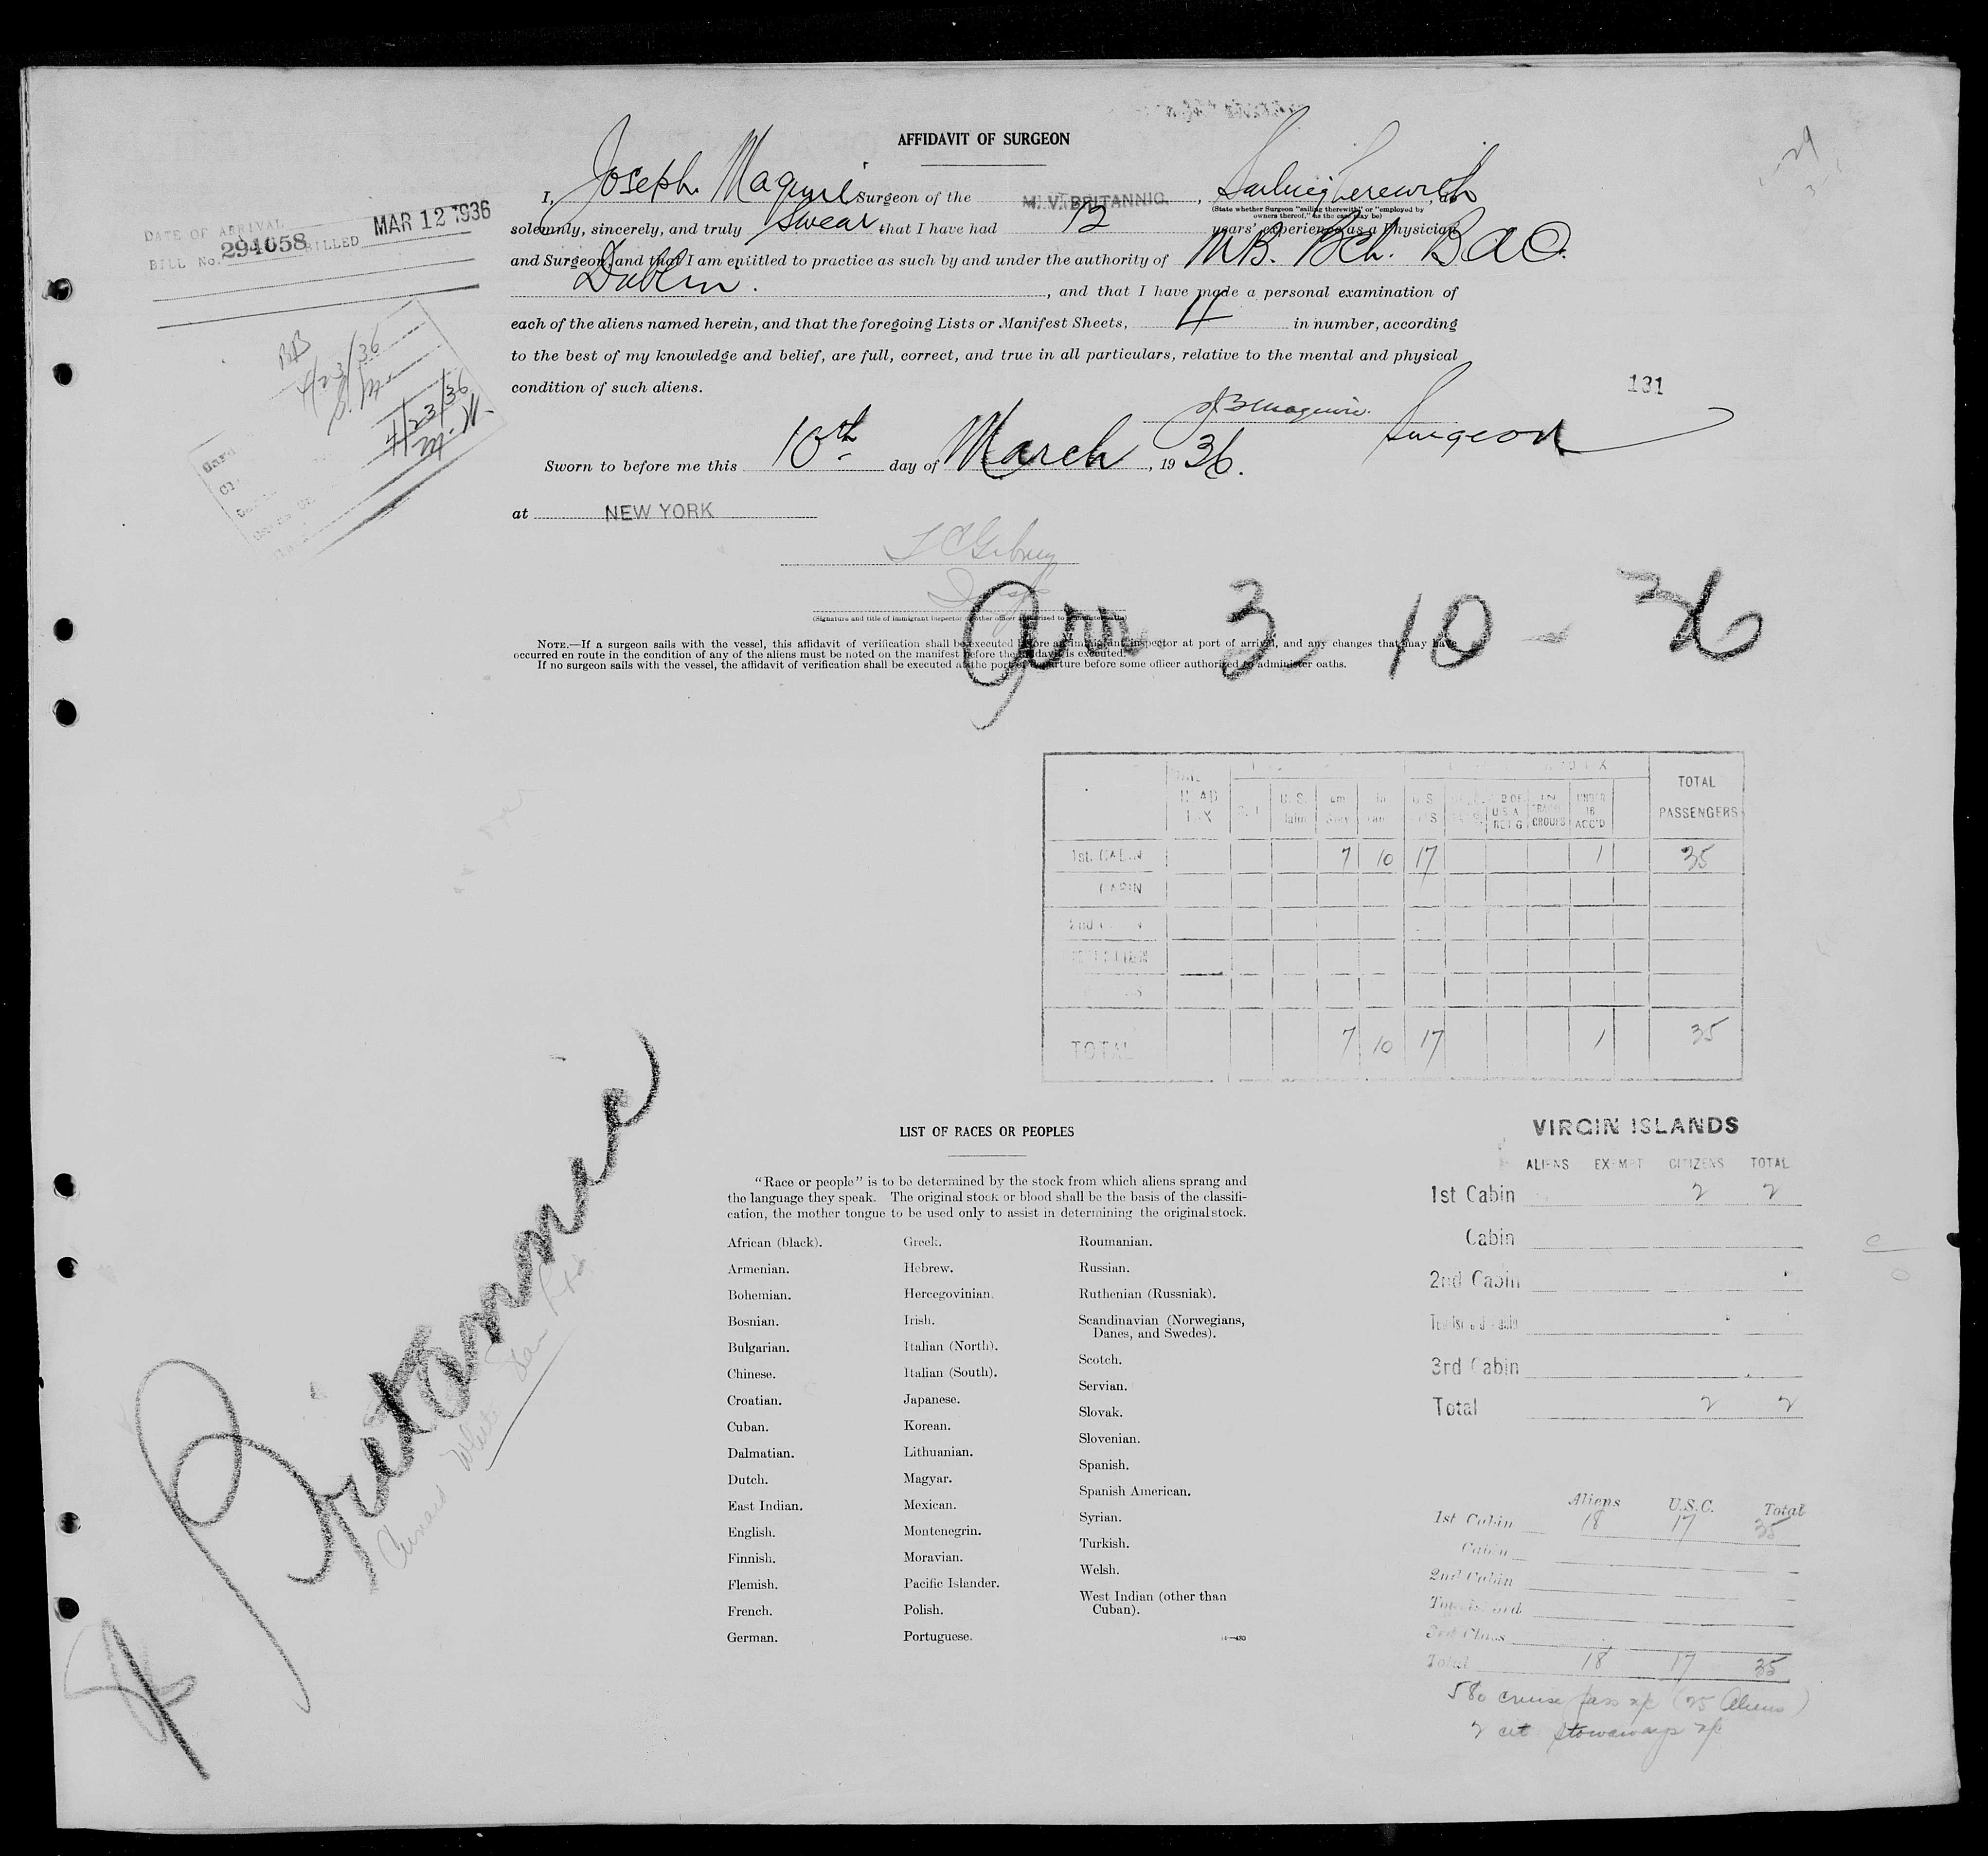 AFFIDAVIT OF SURGEON
I, Joseph Maguire Surgeon of the M. V. BRITANNIC, Sailing therewith, do
(State whether Surgeon "sailing therewith" or "employed by owners thereof," as the case may be)
solemnly, sincerely, and truly swear that I have had 12 years' experience as a Physician
and Surgeon and that I am entitled to practice as such by and under the authority of M.B. B.Ch. B A O.
Dublin., and that I have made a personal examination of
each of the aliens named herein, and that the foregoing Lists or Manifest Sheets, 4 in number, according
to the best of my knowledge and belief, are full, correct, and true in all particulars, relative to the mental and physical
condition of such aliens.
DATE OF ARRIVAL
BILL No. 294058 BILLED MAR 12 1936
BB
4/23/36
4/23/36
131
J B Maguire.
Surgeon
Sworn to before me this 10th day of March, 1936.
at NEW YORK
(Signature and title of immigrant inspector or other officer authorized to administer oaths)
3 10 - 36
NOTE.—If a surgeon sails with the vessel, this affidavit of verification shall be executed before an immigrant inspector at port of arrival, and any changes that may have
occurred en route in the condition of any of the aliens must be noted on the manifest before the affidavit is executed.
If no surgeon sails with the vessel, the affidavit of verification shall be executed at the port of departure before some officer authorized to administer oaths.
HEAD TAX
U. S.
UNDER 16 ACC'D
TOTAL PASSENGERS
1st. CABIN 7 10 17 1 35
CABIN
2nd
TOTAL 7 10 17 1 35
Britannic
Cunard White Star
LIST OF RACES OR PEOPLES
"Race or people" is to be determined by the stock from which aliens sprang and
the language they speak. The original stock or blood shall be the basis of the classifi-
cation, the mother tongue to be used only to assist in determining the original stock.
African (black).
Armenian.
Bohemian.
Bosnian.
Bulgarian.
Chinese.
Croatian.
Cuban.
Dalmatian.
Dutch.
East Indian.
English.
Finnish.
Flemish.
French.
German.
Greek.
Hebrew.
Hercegovinian.
Irish.
Italian (North).
Italian (South).
Japanese.
Korean.
Lithuanian.
Magyar.
Mexican.
Montenegrin.
Moravian.
Pacific Islander.
Polish.
Portuguese.
Roumanian.
Russian.
Ruthenian (Russniak).
Scandinavian (Norwegians,
Danes, and Swedes).
Scotch.
Servian.
Slovak.
Slovenian.
Spanish.
Spanish American.
Syrian.
Turkish.
Welsh.
West Indian (other than
Cuban).
VIRGIN ISLANDS
ALIENS EXEMPT CITIZENS TOTAL
1st Cabin 2 2
Cabin
2nd Cabin
3rd Cabin
Total 2 2
Aliens U.S.C. Total
1st Cabin 18 17 35
Cabin
2nd Cabin
3rd Class
Total 18 17 35
580 cruise pass (25 Aliens)
2 cit stowaways